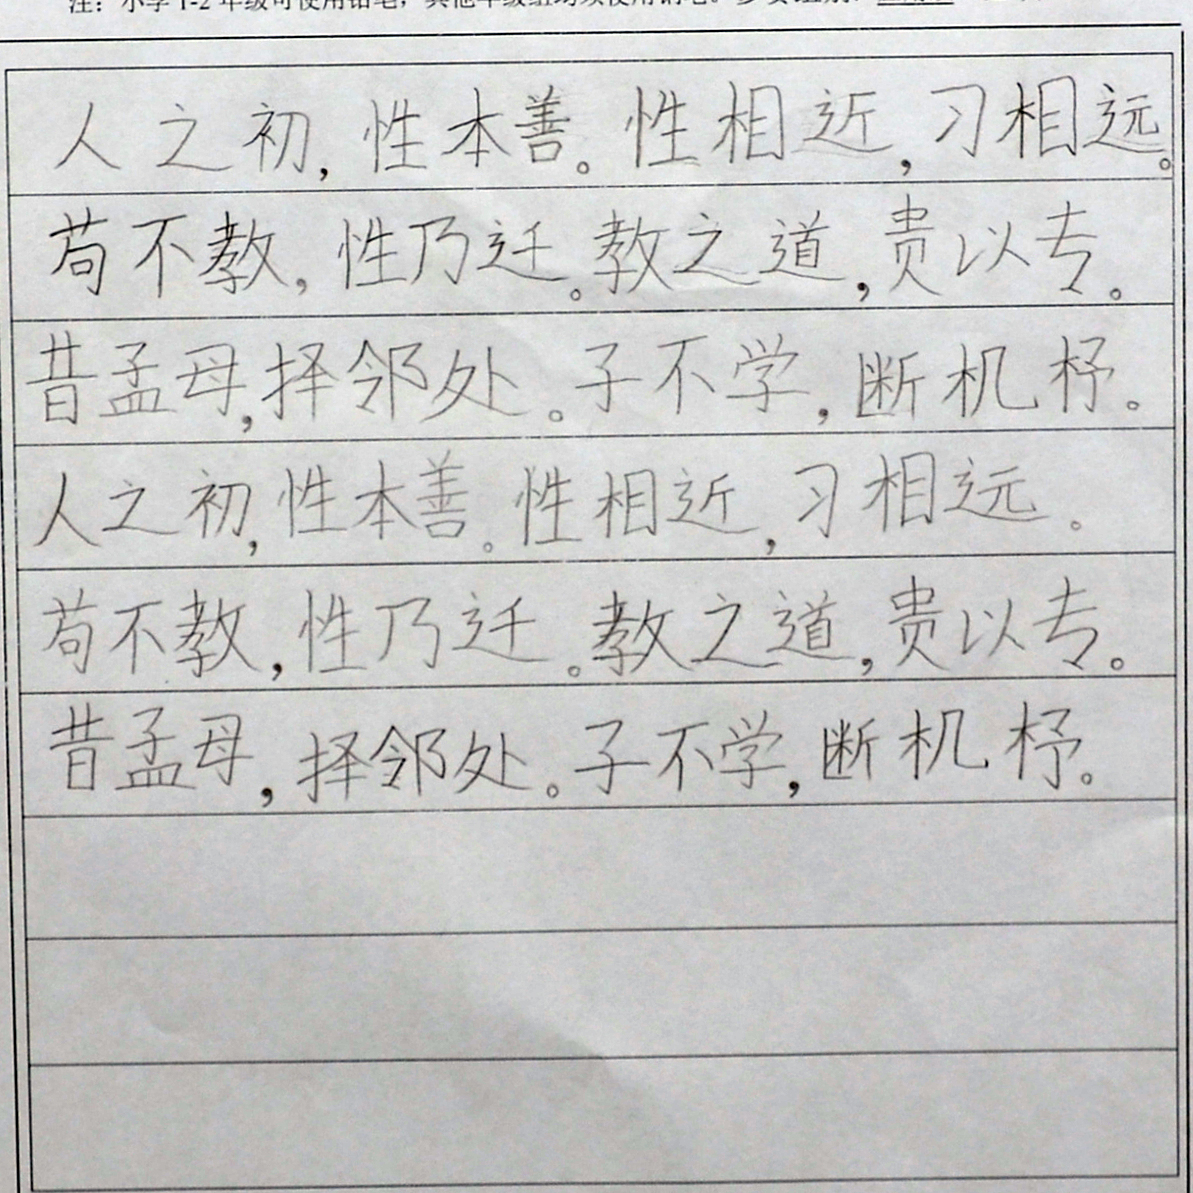 注：小学1-2年级可使用铅笔，其他年级组均须使用钢笔。参赛组别：
人之初，性本善。性相近，习相远。
苟不教，性乃迁。教之道，贵以专。
昔孟母，择邻处。子不学，断机杼。
人之初，性本善。性相近，习相远。
苟不教，性乃迁。教之道，贵以专。
昔孟母，择邻处。子不学，断机杼。